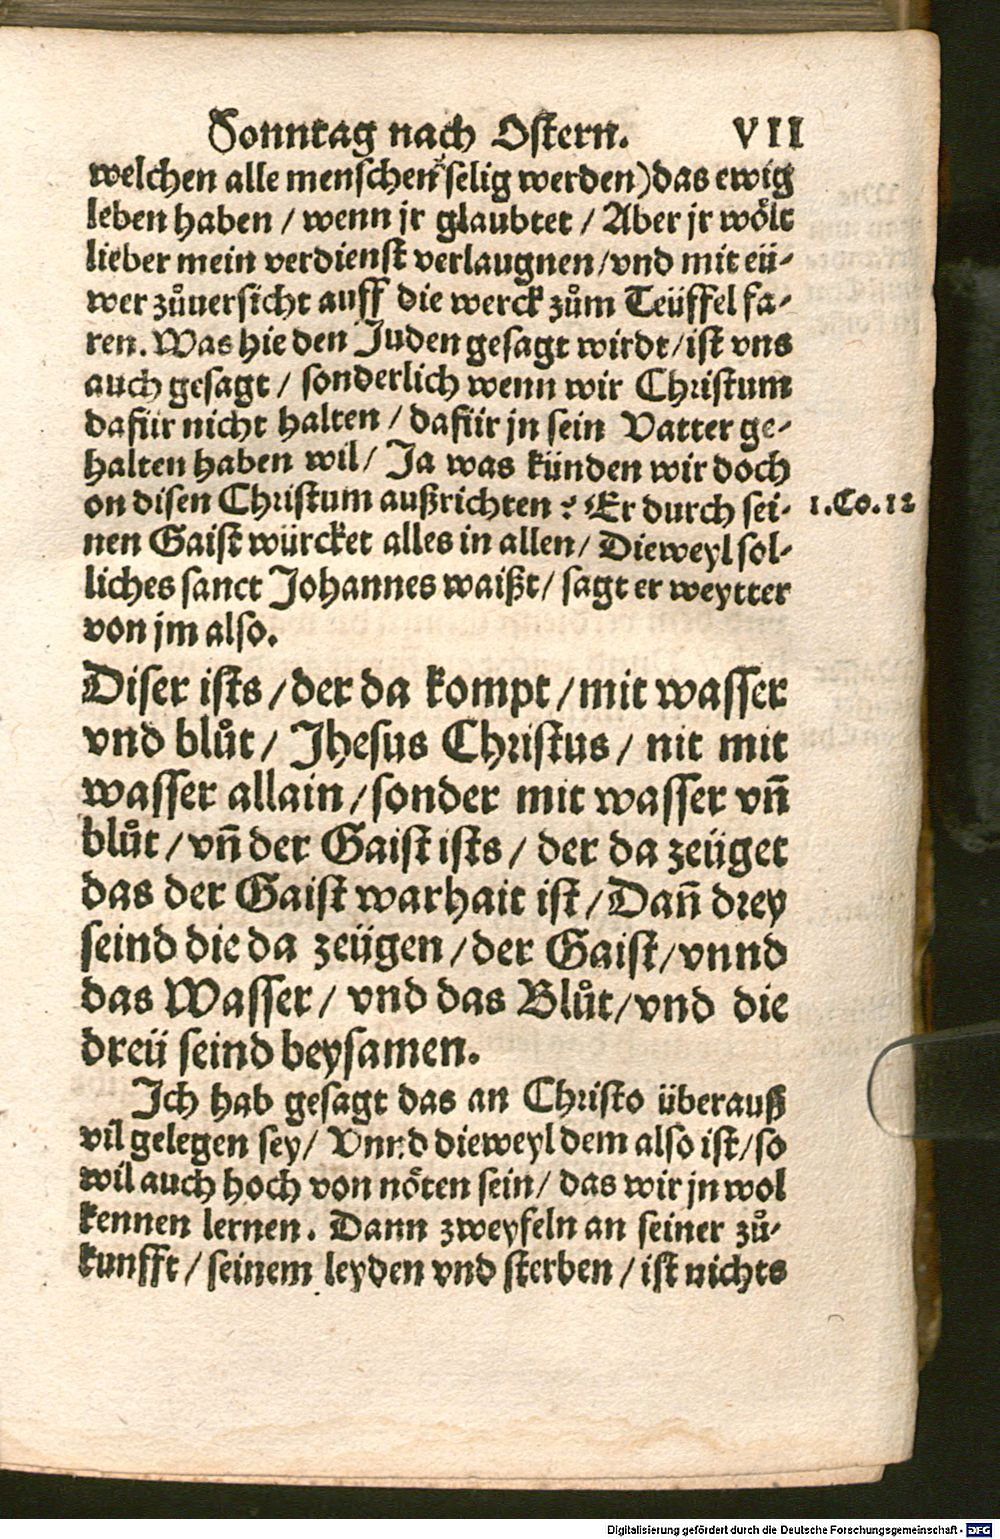 Sonntag nach Ostern. VII
welchen alle menschen selig werden) das ewig
leben haben / wenn jr glaubtet / Aber jr wo̊lt
lieber mein verdienst verlaugnen / vnd mit eü-
wer zůuersicht auff die werck zům Teüffel fa-
ren. Was hie den Juden gesagt wirdt / ist vns
auch gesagt / sonderlich wenn wir Christum
dafür nicht halten / dafür jn sein Vatter ge-
halten haben wil / Ja was künden wir doch
on disen Christum außrichten ? Er durch sei-
1. Co. 12
nen Gaist würcket alles in allen / Dieweyl sol-
liches sanct Johannes waißt / sagt er weytter
von jm also.
Diser ists / der da kompt / mit wasser
vnd blůt / Jhesus Christus / nit mit
wasser allain / sonder mit wasser vn̄
blůt / vn̄ der Gaist ists / der da zeüget
das der Gaist warhait ist / Dan̄ drey
seind die da zeügen / der Gaist / vnnd
das Wasser / vnd das Blůt / vnd die
dreü seind beysamen.
Ich hab gesagt das an Christo überauß
vil gelegen sey / Vnnd dieweyl dem also ist / so
wil auch hoch von nöten sein / das wir jn wol
kennen lernen. Dann zweyfeln an seiner zů-
kunfft / seinem leyden vnd sterben / ist nichts
Digitalisierung gefördert durch die Deutsche Forschungsgemeinschaft - DFG